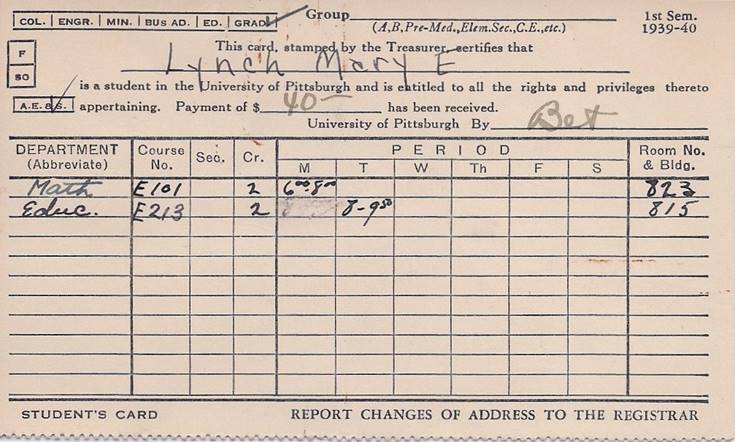 COL. | ENGR. | MIN. | BUS AD. | ED. | GRAD. Group 1st Sem.
(A,B,Pre-Med.,Elem.Sec.,C.E.,etc.) 1939-40
F This card, stamped by the Treasurer, certifies that
Lynch Mary E
SO is a student in the University of Pittsburgh and is entitled to all the rights and privileges thereto
A.E.&S. appertaining. Payment of $ 40- has been received.
University of Pittsburgh By
DEPARTMENT (Abbreviate) Course No. Sec. Cr. PERIOD Room No. & Bldg.
M T W Th F S
Math E101 2 6:00-8:00 823
Educ. E213 2 8-9:50 815
STUDENT'S CARD REPORT CHANGES OF ADDRESS TO THE REGISTRAR